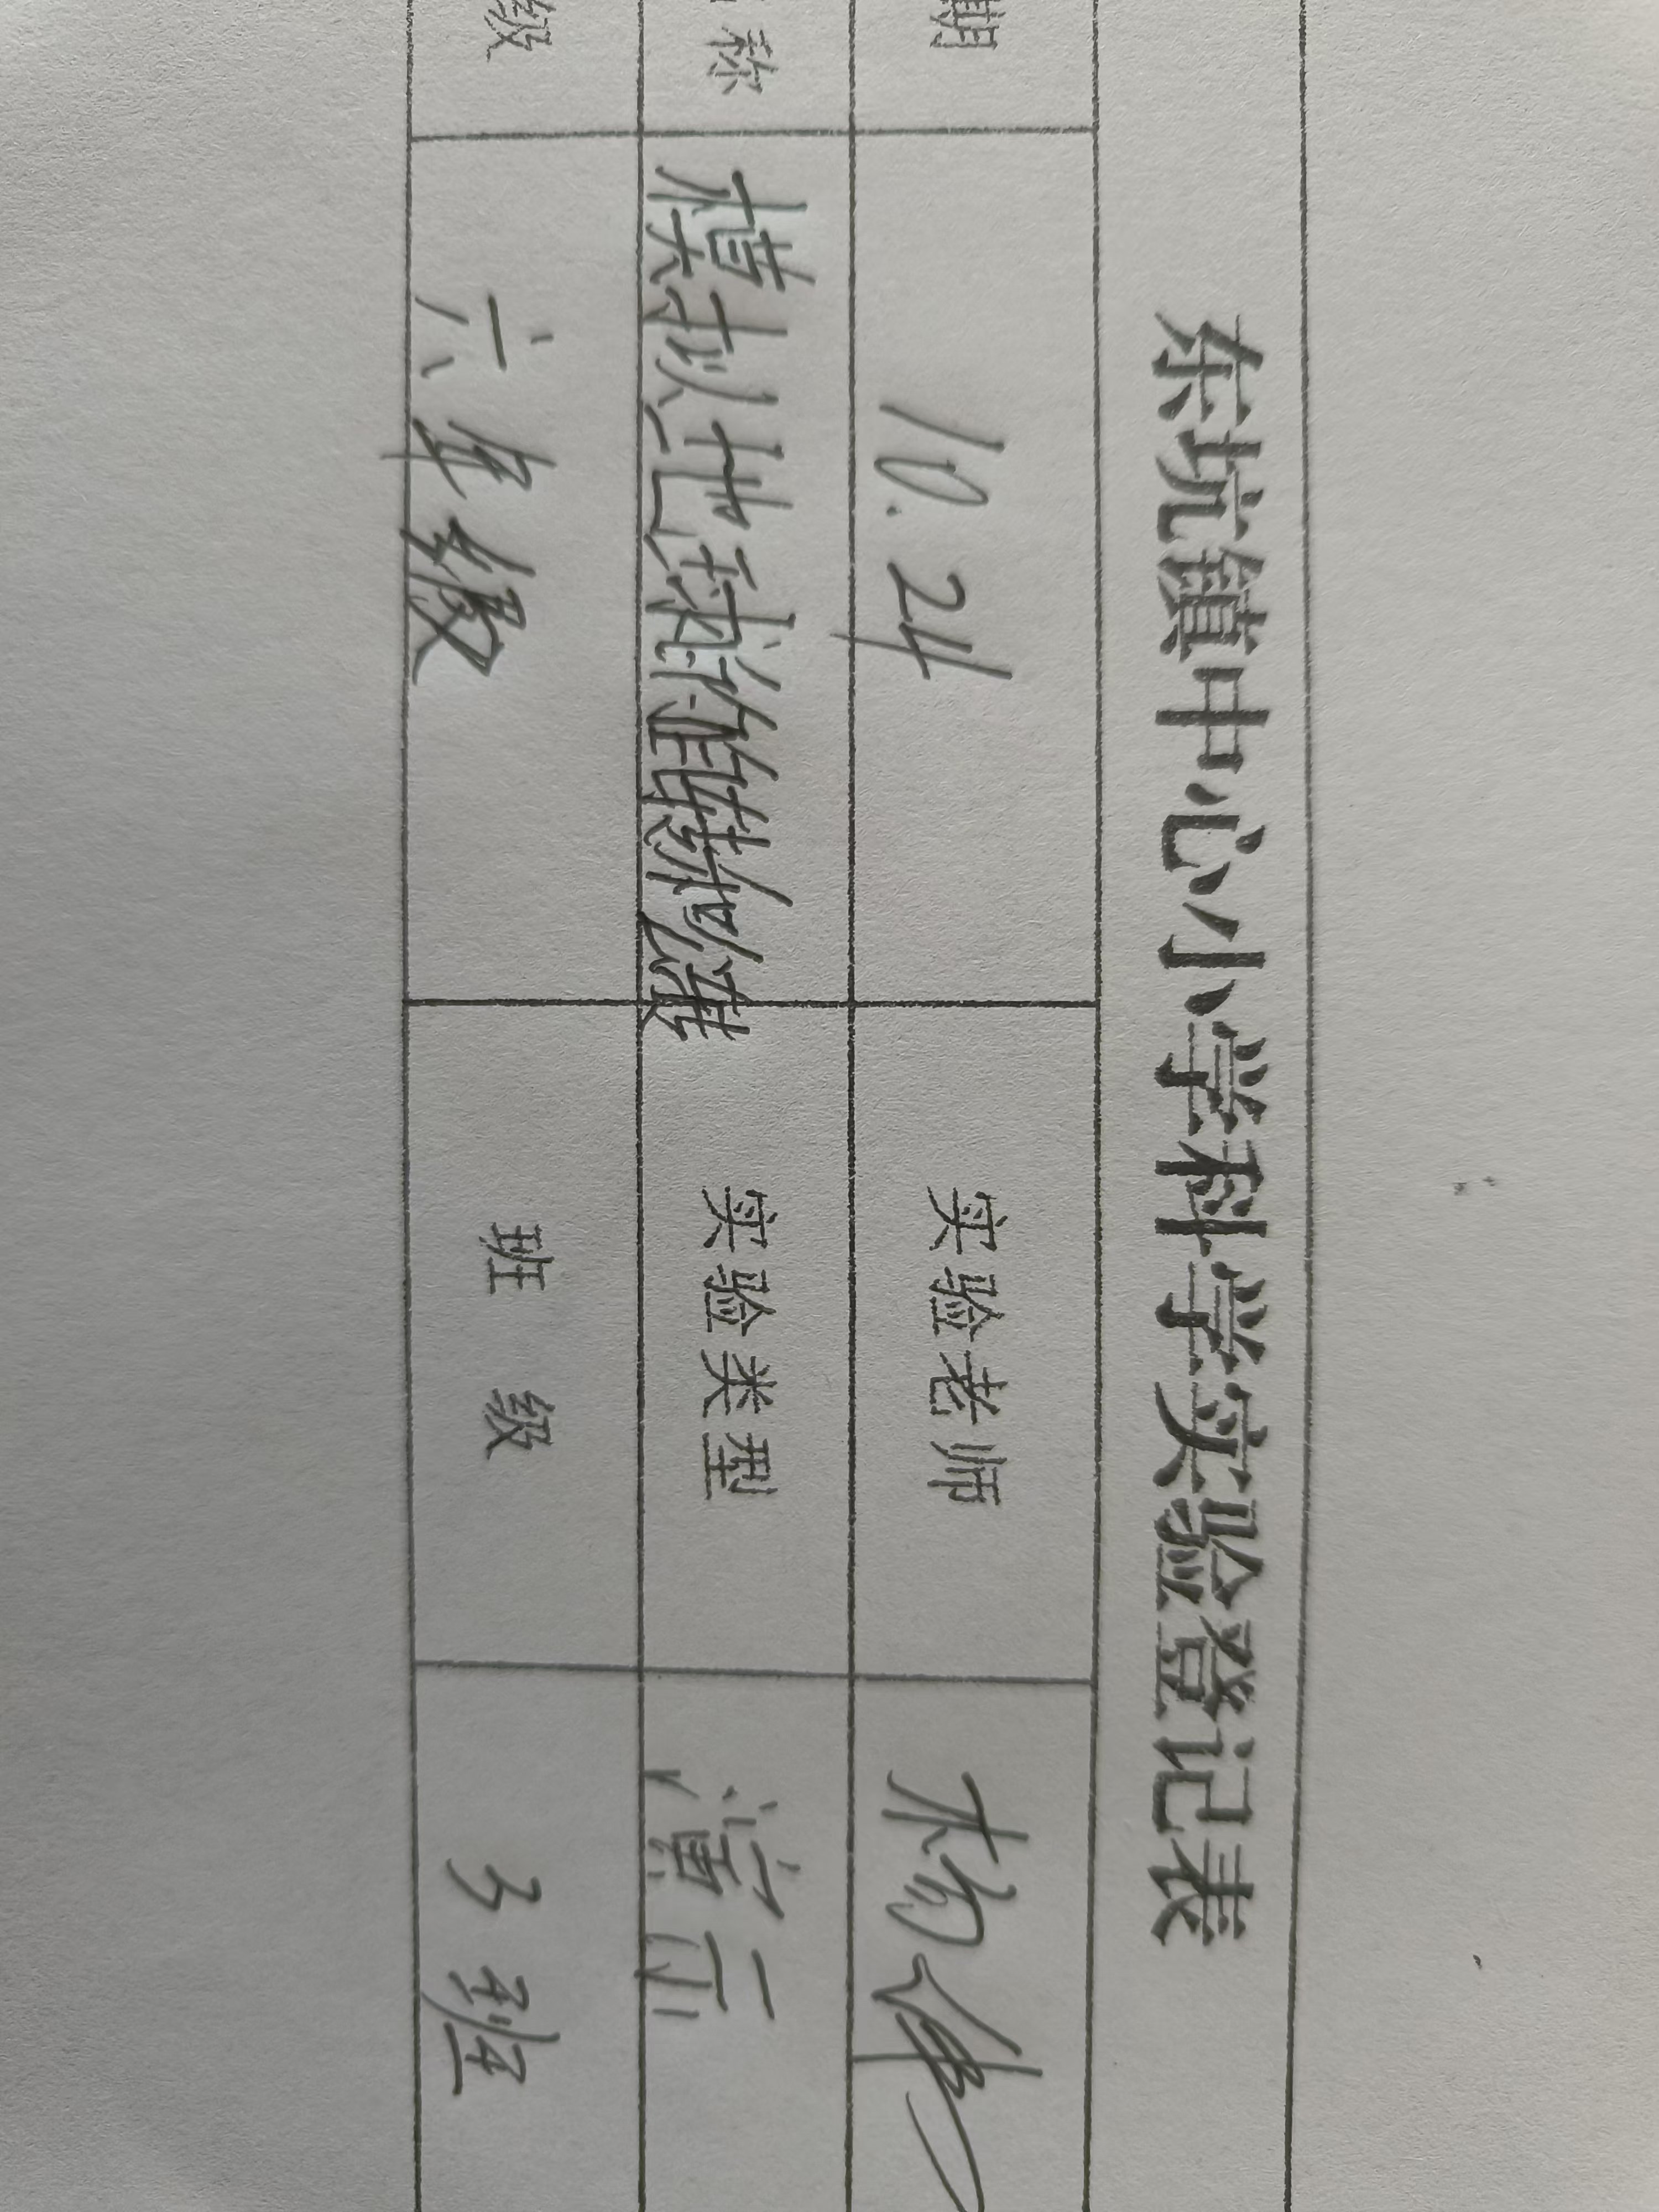 东坑镇中心小学科学实验登记表
期 10.24 实验老师 杨
称 模拟地球 实验类型 演示
级 六年级 班 级 3班